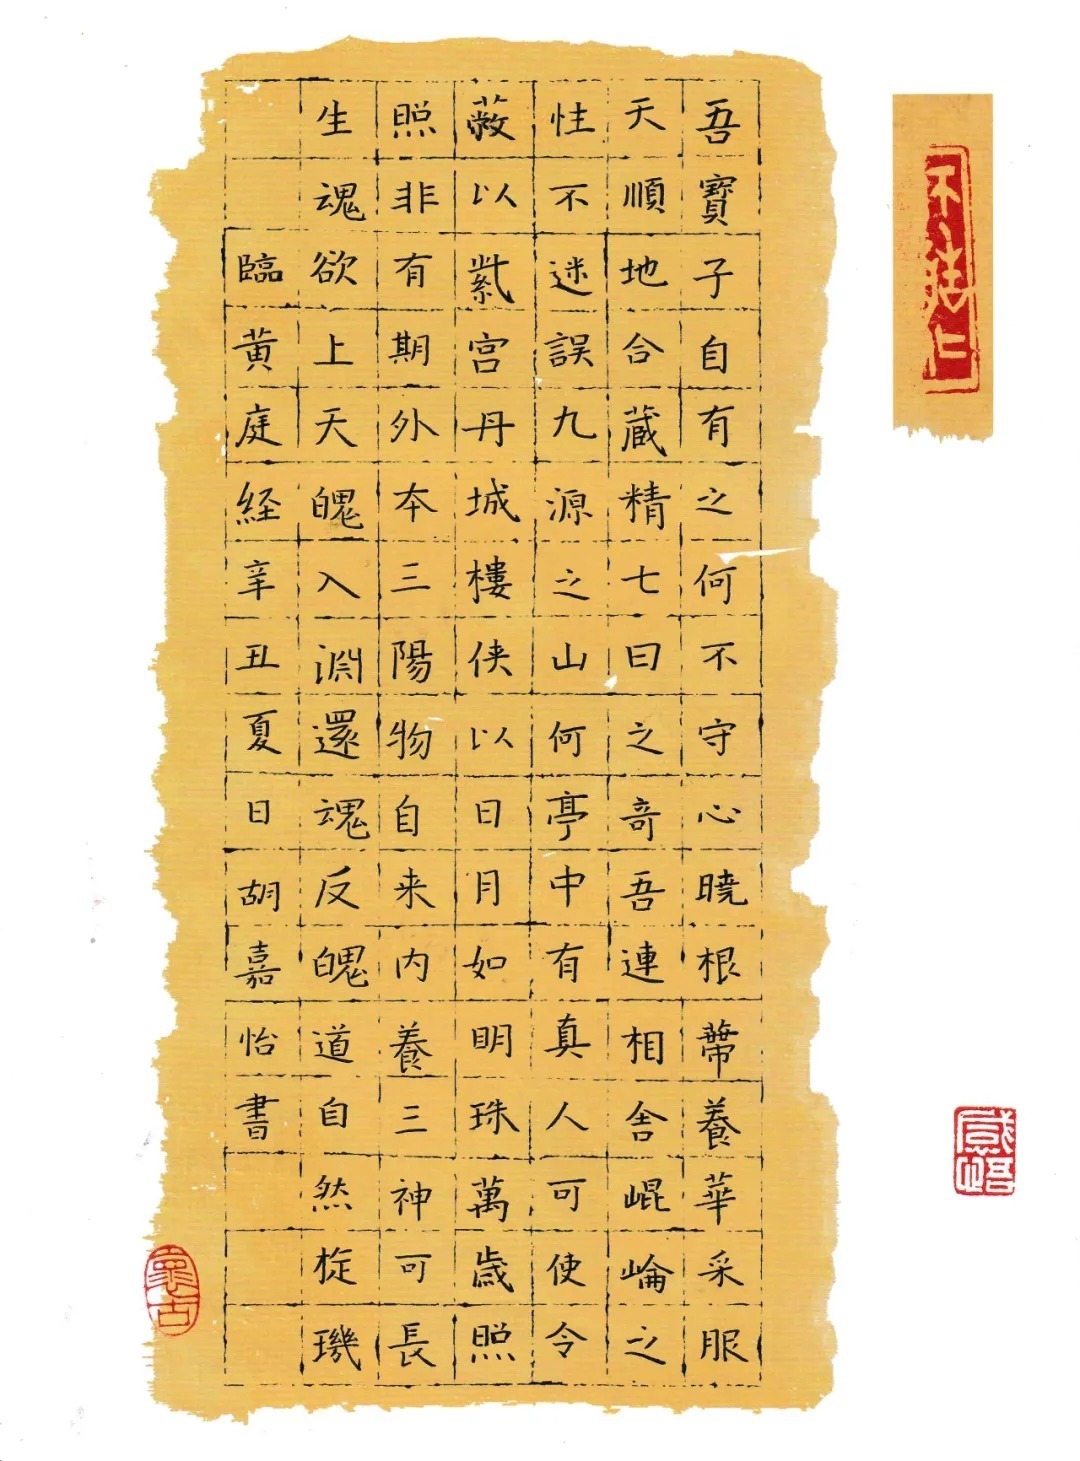 吾寶子自有之何不守心曉根蔕養華采服
天順地合藏精七日之奇吾連相舍崐崘之
性不迷誤九源之山何亭中有真人可使令
蔽以紫宫丹城樓俠以日月如明珠萬歲照
照非有期外本三陽物自来内養三神可長
生魂欲上天魄入淵還魂反魄道自然旋璣
臨黃庭経辛丑夏日胡嘉怡書
感悟